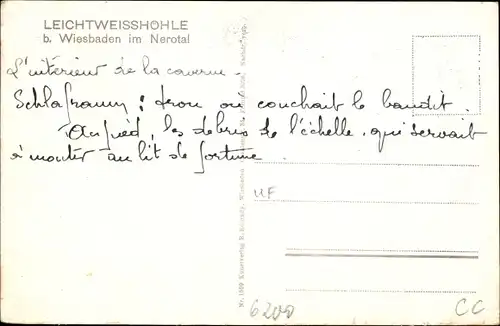 LEICHTWEISSHÖHLE
b. Wiesbaden im Nerotal
L'intérieur de la caverne.
Schlafraum : trou où couchait le bandit.
Au pied, les débris de l'échelle, qui servait
à monter au lit de fortune
HF
6200
CC